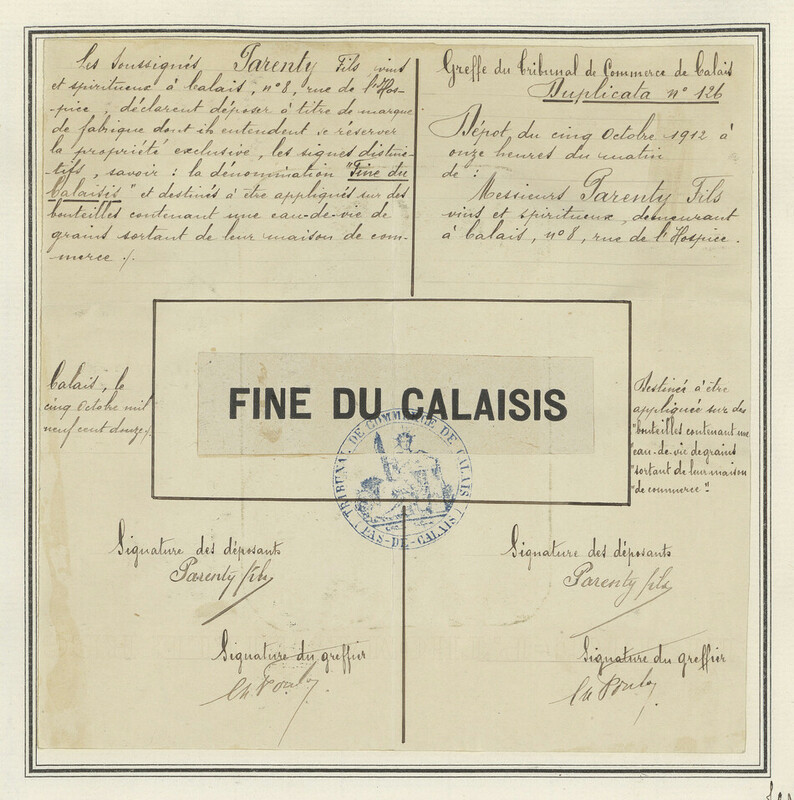 Les soussignés Parenty Fils vins
et spiritueux à Calais, n°8, rue de l'Hos-
-pice, déclarent déposer à titre de marque
de fabrique dont ils entendent se réserver
la propriété exclusive, les signes distinc-
-tifs, savoir : la dénommination "Fine du
Calaisis" et destinés à être appliqués sur des
bouteilles contenant une eau-de-vie de
grains sortant de leur maison de com-
-merce ./.
Greffe du Tribunal de Commerce de Calais
Duplicata n° 126
Dépôt, du cinq Octobre 1912 à
onze heures du matin
de :
Messieurs Parenty Fils
vins et spiritueux, demeurant
à Calais, n°8, rue de l'Hospice.
Calais, le
cinq Octobre mil
neuf cent douze ./.
FINE DU CALAISIS
TRIBUNAL DE COMMERCE DE CALAIS
(PAS-DE-CALAIS)
Destinée à être
appliquée sur des
"bouteilles contenant une
"eau-de-vie de grains
"sortant de leur maison
"de commerce".
Signature des déposants
Parenty fils
Signature du greffier
Signature des déposants
Parenty fils
Signature du greffier